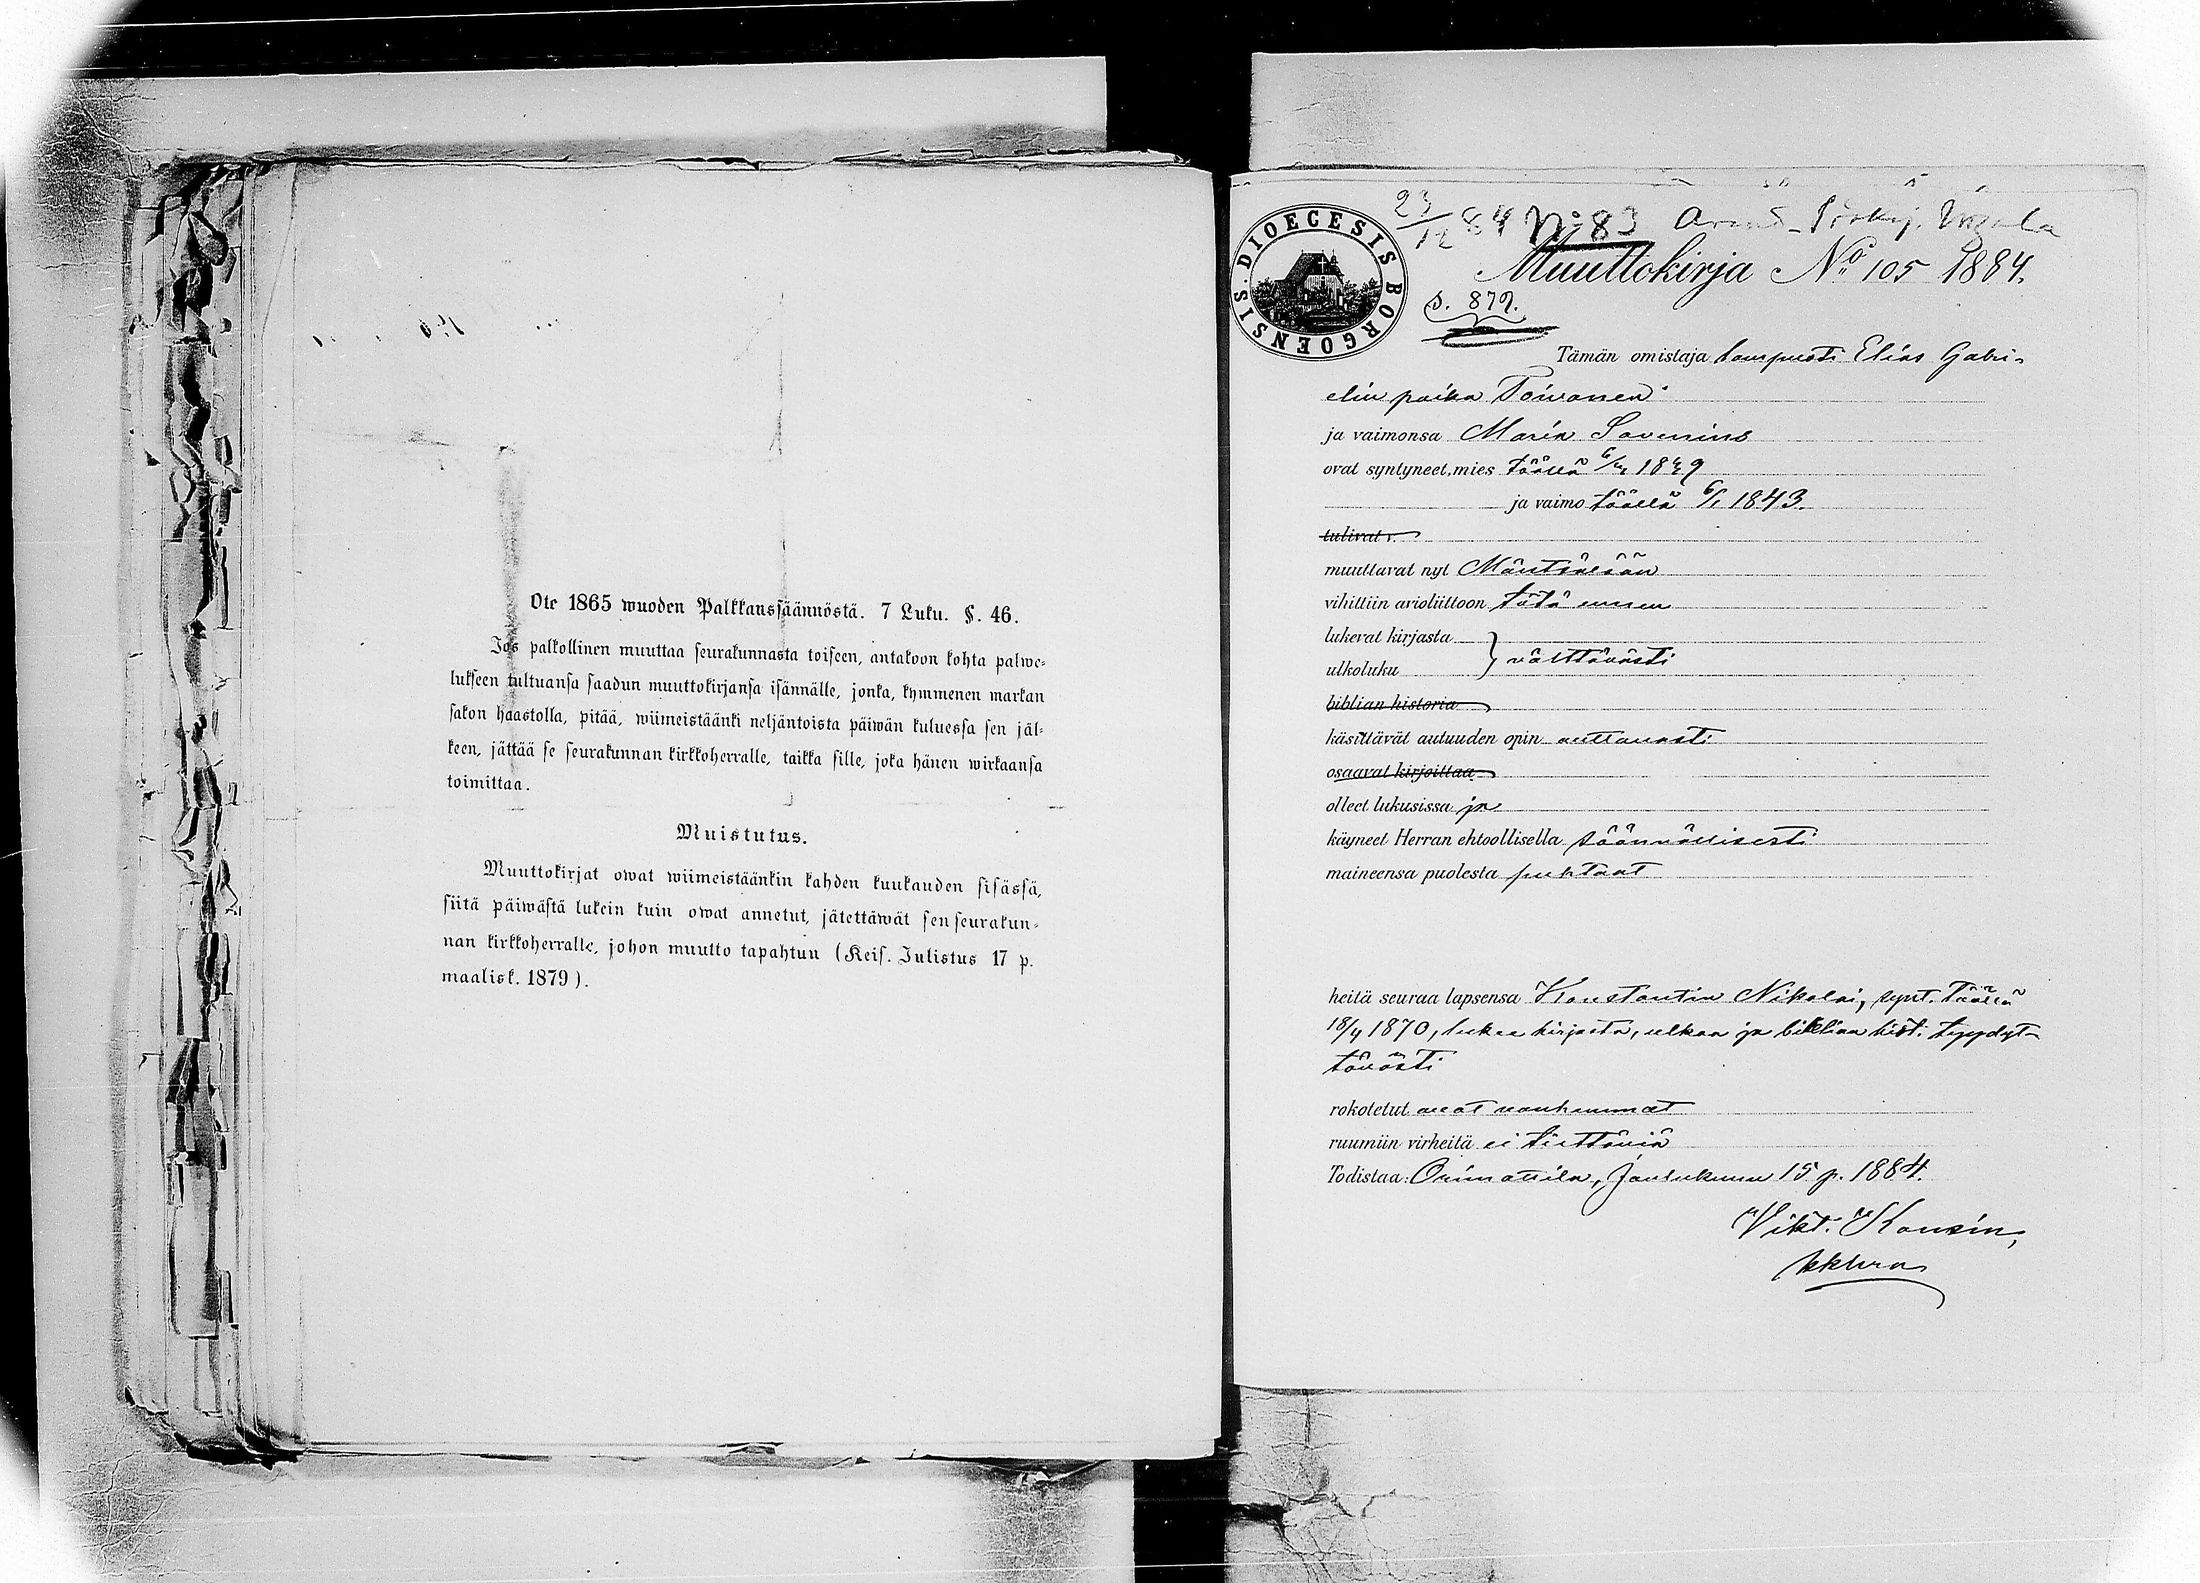 Ote 1865 wuoden Palkkanssäännöstä. 7 Luku. §. 46.
Jos palkollinen muuttaa seurakunnasta toiseen, antakoon kohta palwe-
lukseen tultuansa saadun muuttokirjansa isännälle, jonka, kymmenen markan
sakon haastolla, pitää, wiimeistäänki neljäntoista päiwän kuluessa sen jäl-
keen, jättää se seurakunnan kirkkoherralle, taikka sille, joka hänen wirkaansa
toimittaa.
Muistutus.
Muuttokirjat owat wiimeistäänkin kahden kuukauden sisässä,
siitä päiwästä lukein kuin owat annetut, jätettäwät sen seurakun-
nan kirkkoherralle, johon muutto tapahtuu (Keis. Julistus 17 p.
maalisk. 1879).
DIOECESIS BORGOENSIS.
23/12 84 No 83
Muuttokirja No 105 1884.
S. 879.
Tämän omistaja Elias Gabri-
elin poika Toivonen
ja vaimonsa Maria Savenius
ovat syntyneet, mies täällä 1849
ja vaimo täällä 6/1 1843.
tulivat v.
muuttavat nyt Mäntsälään
vihittiin avioliittoon tätä ennen
lukevat kirjasta
ulkoluku } välttävästi
biblian historia
käsittävät autuuden opin auttavasti
osaavat kirjoittaa
olleet lukusissa ja
käyneet Herran ehtoollisella säännöllisesti
maineensa puolesta puhtaat
heitä seuraa lapsensa Konstantin Nikolai, synt. täällä
18/4 1870, lukee kirjasta, ulkoa ja biblian hist. tyydyt-
tävästi
rokotetut ovat vanhemmat
ruumiin virheitä ei tiettäviä
Todistaa: Orimattila, Joulukuun 15 p. 1884.
Vikt. Konsin,
kkhra